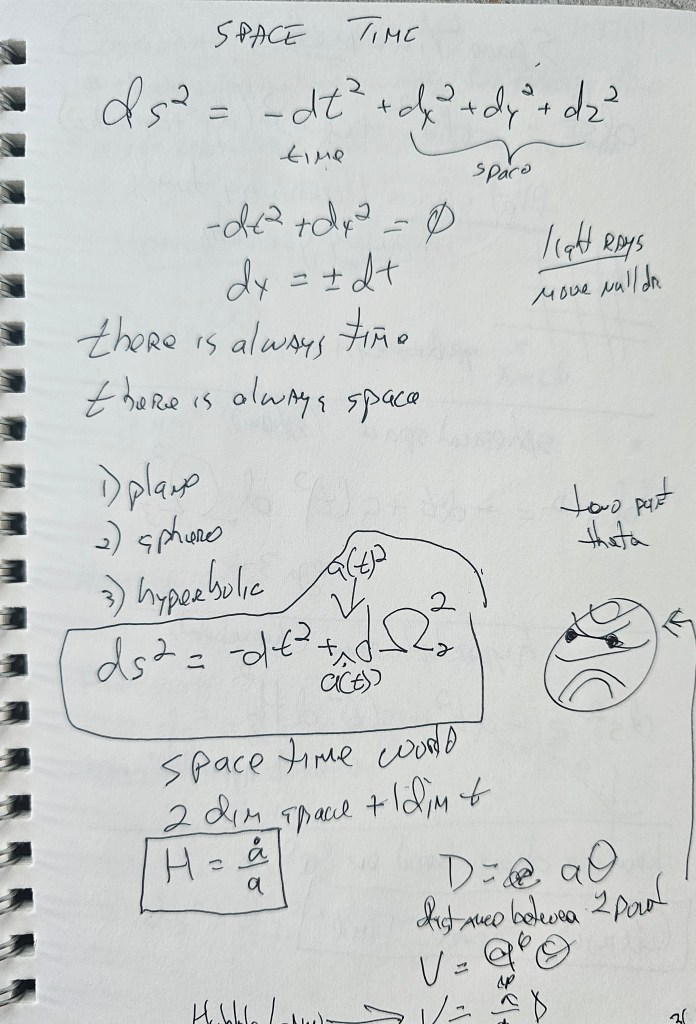 SPACE TIME
ds² = -dt² + dx² + dy² + dz²
time
space
-dt² + dx² = 0
dx = ± dt
light RAYS
move null dn
there is always time
there is always space
1) plane
2) sphere
3) hyperbolic
two part
theta
a(t)²
ds² = -dt² + dΩ₂²
a(t)
space time world
2 dim space + 1 dim t
H = ȧ/a
D = aθ
distance between 2 point
V = ȧ θ
Hubble law → V = ȧ/a D